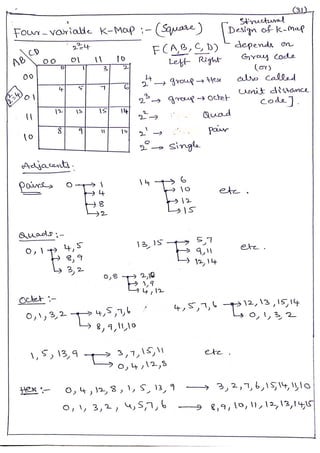 (31)
Four-variable K-Map :- (Square)
Structural
Design of K-map
depends on
Gray code
(or)
also called
unit distance
code].
F(A, B, C, D)
Left Right
2²=4
CD
AB 00 01 11 10
00 0 1 3 2
01 4 5 7 6
11 12 13 15 14
10 8 9 11 10
2²=4
2⁴ → group → Hex
2³ → group → octet
2² → ∴ Quad
2¹ → ∴ pair
2⁰ → Single
Adjacents:-
pairs 0 → 1
→ 4
→ 8
→ 2
14 → 6
→ 10
→ 12
→ 15
etc.
Quads:-
0, 1 → 4, 5
→ 8, 9
→ 3, 2
13, 15 → 5, 7
→ 9, 11
→ 12, 14
etc.
0, 8 → 2, 10
→ 1, 9
→ 4, 12
Octet :-
0, 1, 3, 2 → 4, 5, 7, 6
→ 8, 9, 11, 10
4, 5, 7, 6 → 12, 13, 15, 14
→ 0, 1, 3, 2
1, 5, 13, 9 → 3, 7, 15, 11
→ 0, 4, 12, 8
etc.
Hex :- 0, 4, 12, 8, 1, 5, 13, 9 → 3, 2, 7, 6, 15, 14, 11, 10
0, 1, 3, 2, 4, 5, 7, 6 → 8, 9, 10, 11, 12, 13, 14, 15